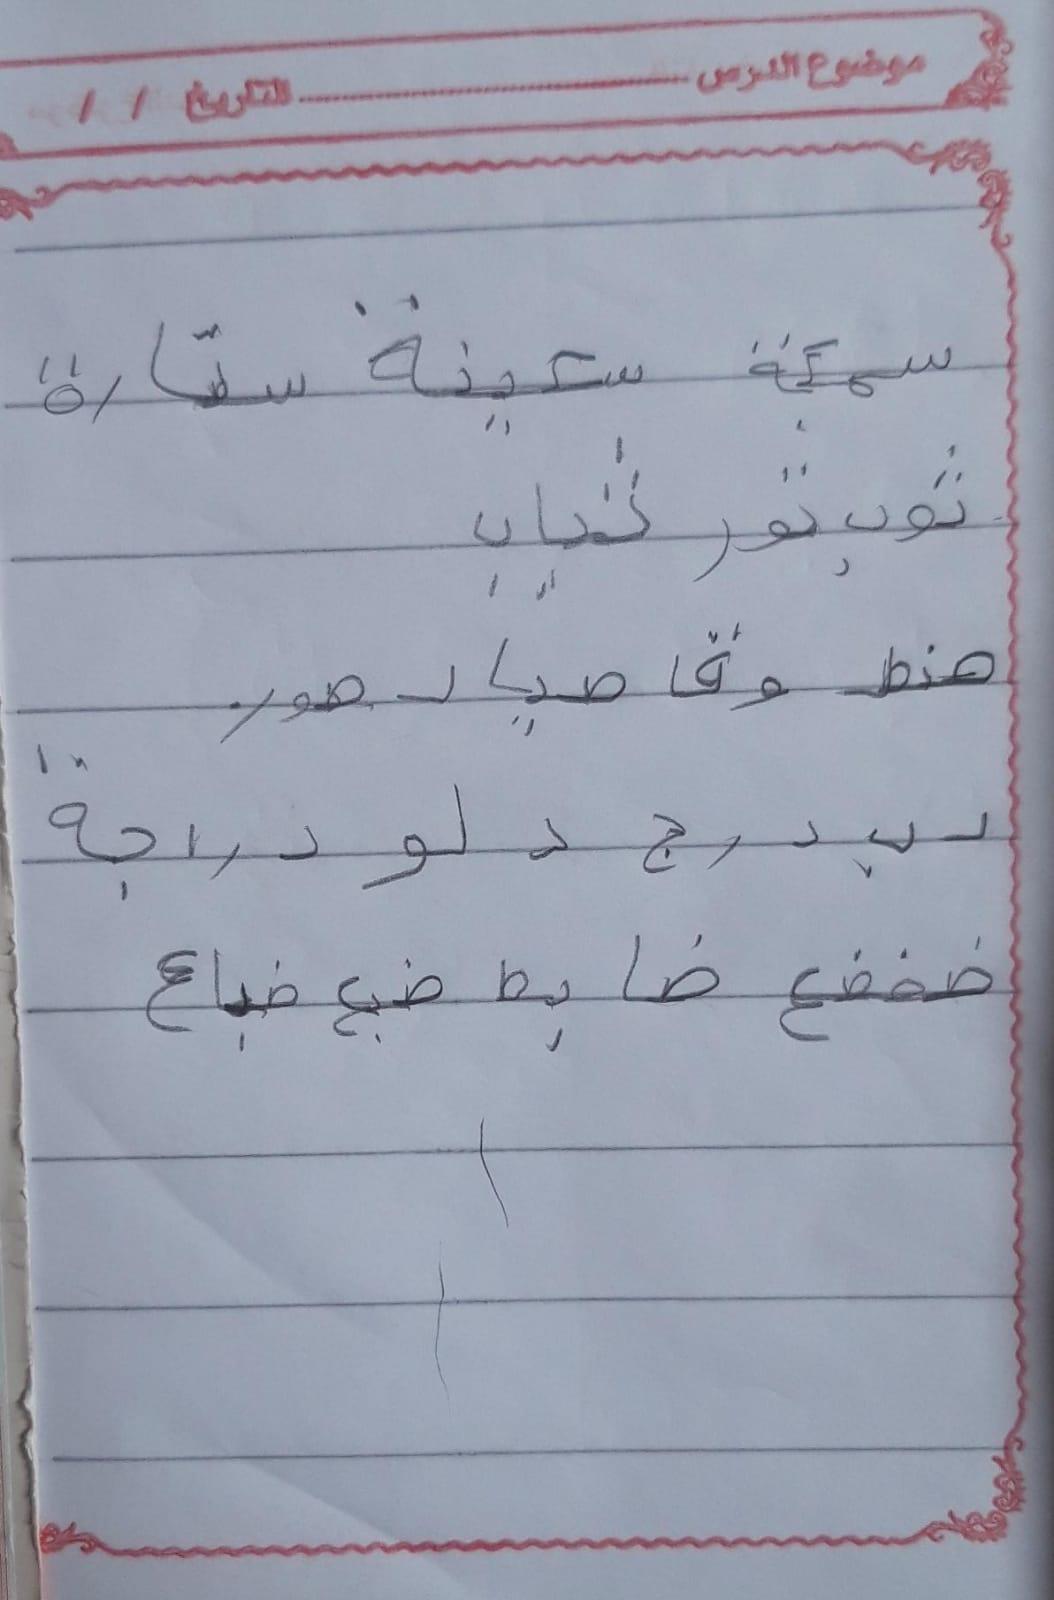 موضوع الدرس ............ التاريخ / /
سمكة سكينة ستارة
ثوب ثور ثياب
هنط وقا صياد صور
دب درج دلو دراجة
ضفضع ضابط ضبع ضباع